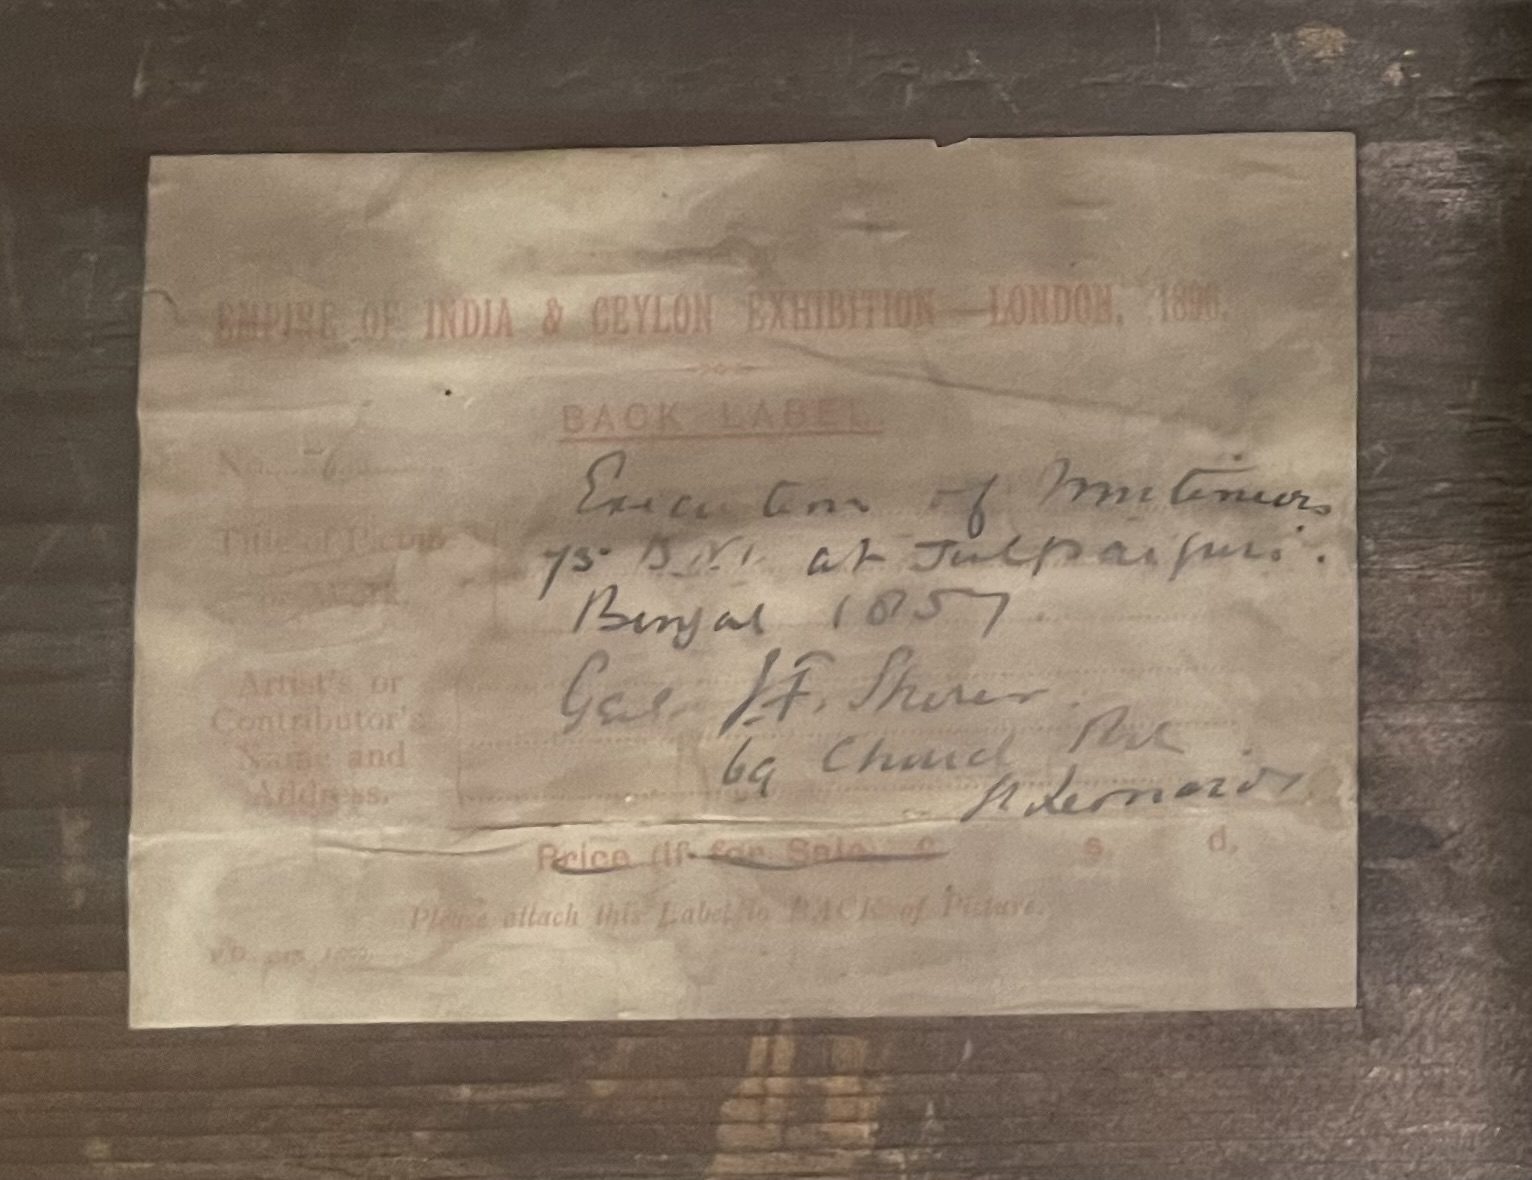 EMPIRE OF INDIA & CEYLON EXHIBITION—LONDON, 1896.
BACK LABEL.
No.
Execution of Mutineers
Title of Picture
73 B.N.I. at Julpaiguri.
or Work.
Bengal 1857
Artist's or
Contributor's
Name and
Address.
Genl J.F. Sherer
69 Church Rd
St Leonards
Price (if for Sale) £ s. d.
Please attach this Label to BACK of Picture.